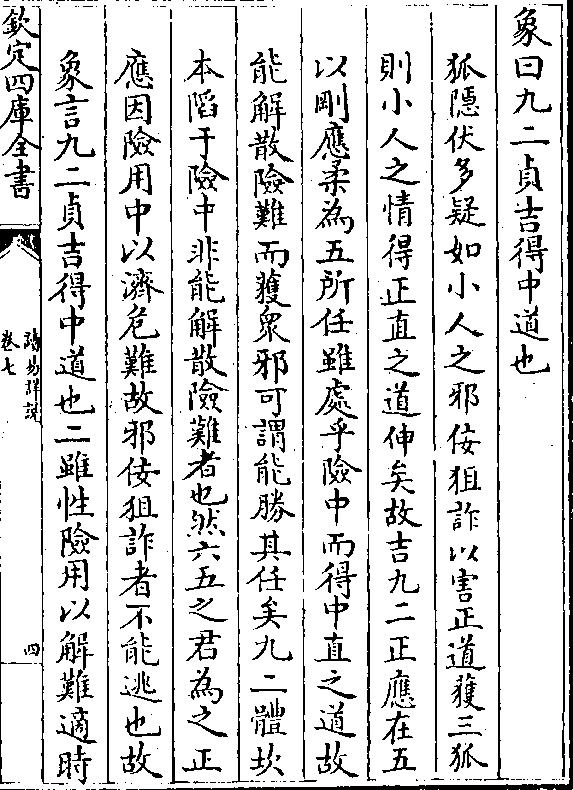 象曰九二貞吉得中道也
狐隱伏多疑如小人之邪佞狙詐以害正道獲三狐
則小人之情得正直之道伸矣故吉九二正應在五
以剛應柔為五所任雖處乎險中而得中直之道故
能解散險難而獲衆邪可謂能勝其任矣九二體坎
本陷于險中非能解散險難者也然六五之君為之正
應因險用中以濟危難故邪佞狙詐者不能逃也故
象言九二貞吉得中道也二雖性險用以解難適時
欽定四庫全書
讀易詳說
卷七
四